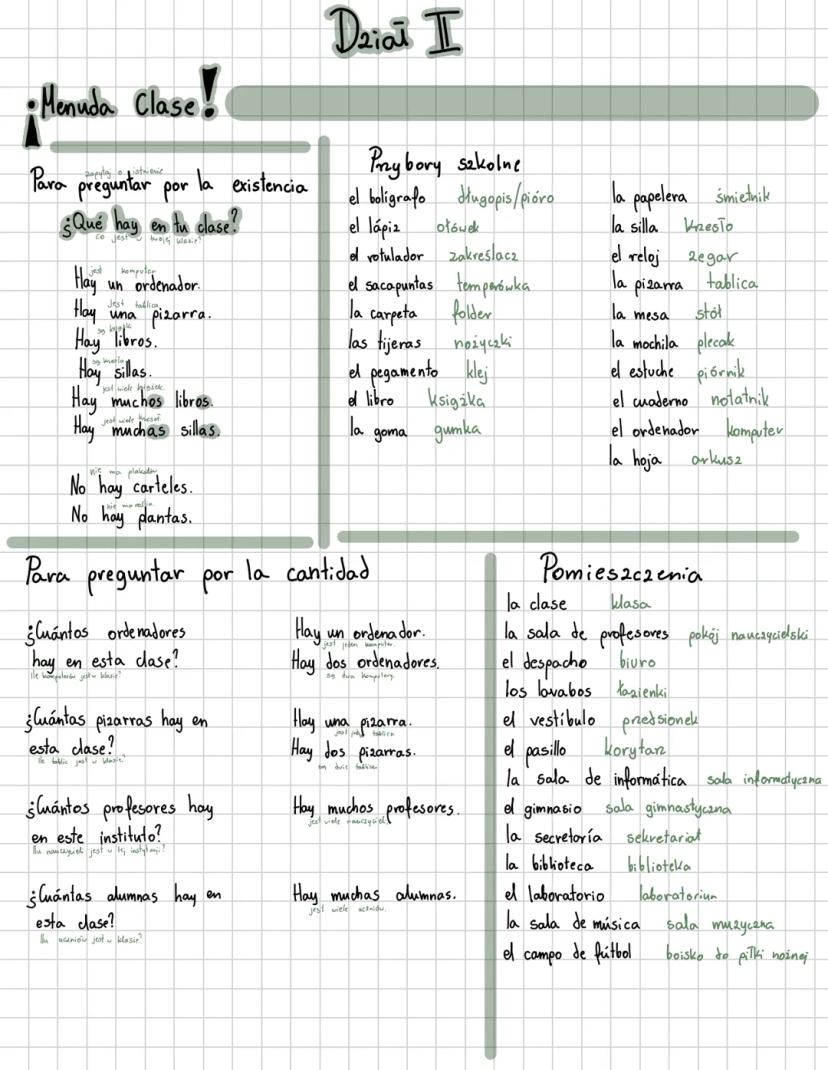 Dział II
¡Menuda Clase!
zapytaj o istnienie
Para preguntar por la existencia
¿Qué hay en tu clase?
co jest w twojej klasie?
jest komputer
Hay un ordenador.
Jest tablica
Hay una pizarra.
są książki
Hay libros.
są krzesła
Hay sillas.
jest wiele książek
Hay muchos libros.
jest wiele krzeseł
Hay muchas sillas.
nie ma plakatów
No hay carteles.
nie ma roślin
No hay plantas.
Przybory szkolne
el boligrafo długopis/pióro
el lápiz ołówek
el rotulador zakreślacz
el sacapuntas temperówka
la carpeta folder
las tijeras nożyczki
el pegamento klej
el libro książka
la goma gumka
la papelera śmietnik
la silla krzesło
el reloj zegar
la pizarra tablica
la mesa stół
la mochila plecak
el estuche piórnik
el cuaderno notatnik
el ordenador komputer
la hoja arkusz
Para preguntar por la cantidad
¿Cuántos ordenadores
hay en esta clase?
Ile komputerów jest w klasie?
Hay un ordenador.
jest jeden komputer.
Hay dos ordenadores.
są dwa komputery
¿Cuántas pizarras hay en
esta clase?
Ile tablic jest w klasie?
Hay una pizarra.
jest tablica
Hay dos pizarras.
są dwie tablice
¿Cuántos profesores hay
en este instituto?
Ilu nauczycieli jest w tej instytucji?
Hay muchos profesores.
jest wiele nauczycieli
¿Cuántas alumnas hay en
esta clase?
Ilu uczniów jest w klasie?
Hay muchas alumnas.
jest wiele uczniów.
Pomieszczenia
la clase klasa
la sala de profesores pokój nauczycielski
el despacho biuro
los lavabos łazienki
el vestíbulo przedsionek
el pasillo korytarz
la sala de informática sala informatyczna
el gimnasio sala gimnastyczna
la secretoría sekretariat
la biblioteca biblioteka
el laboratorio laboratorium
la sala de música sala muzyczna
el campo de fútbol boisko do piłki nożnej